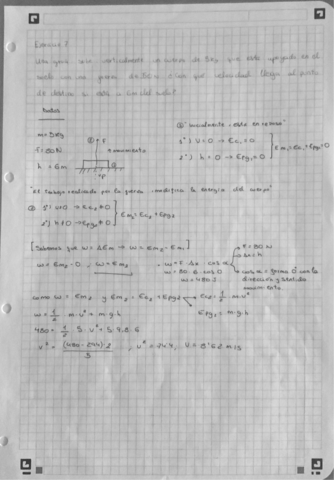 Ejercicio 7
Una grúa sube verticalmente un cuerpo de 5kg que está apoyado en el
suelo con una fuerza de 80N ¿Con qué velocidad llega al punto
de destino si está a 6m del suelo?
Datos
m=5kg
F=80N
h = 6m
movimiento
"Inicialmente está en reposo"
1º) V=0 → Ec₁=0
2º) h=0 → Epg₁=0
Em₁=Ec₁+Epg₁=0
"El trabajo realizado por la fuerza modifica la energía del cuerpo"
② 1º) v≠0 → Ec₂≠0
2º) h≠0 → Epg₂≠0
Em₂=Ec₂+Epg₂
[Sabemos que W=ΔEm → W=Em₂-Em₁]
W=Em₂-0, W=Em₂
W=F·Δx·cos α
W=80·6·cos 0
W=480J
F=80N
Δx=h
cos α = forma 0º con la
dirección y sentido
movimiento
como W=Em₂ y Em₂=Ec₂+Epg₂
Ec₂=½·m·v²
Epg₂=m·g·h
W=½·m·v²+m·g·h
480=½·5·v²+5·9.8·6
v²=(480-294)·2/5, v²=74.4, V=8'62 m/s